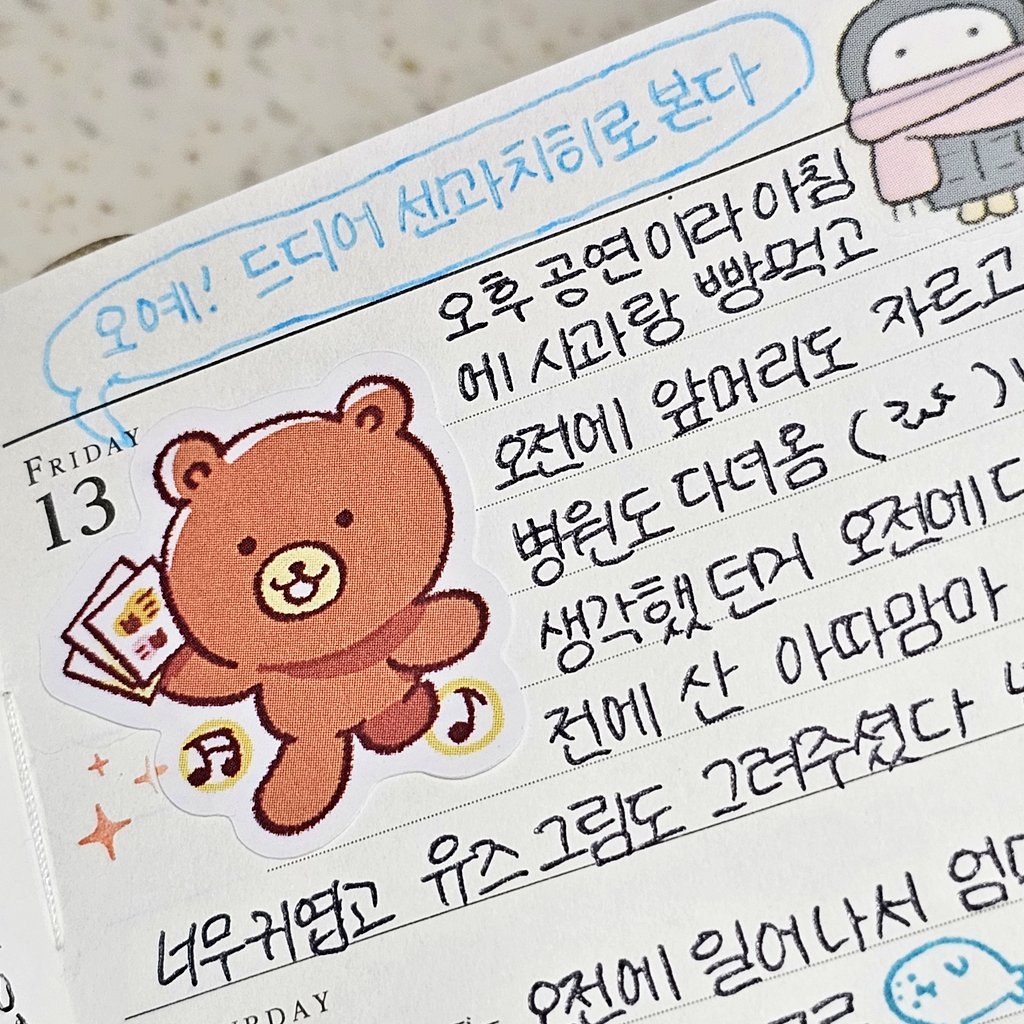 오예! 드디어 센과치히로 본다
FRIDAY
13
오후 공연이라 아침
에 사과랑 빵먹고
오전에 앞머리도 자르고
병원도 다녀옴
생각했던거 오전에 다
전에 산 아따맘마
너무귀엽고 유즈 그림도 그려주셨다
오전에 일어나서